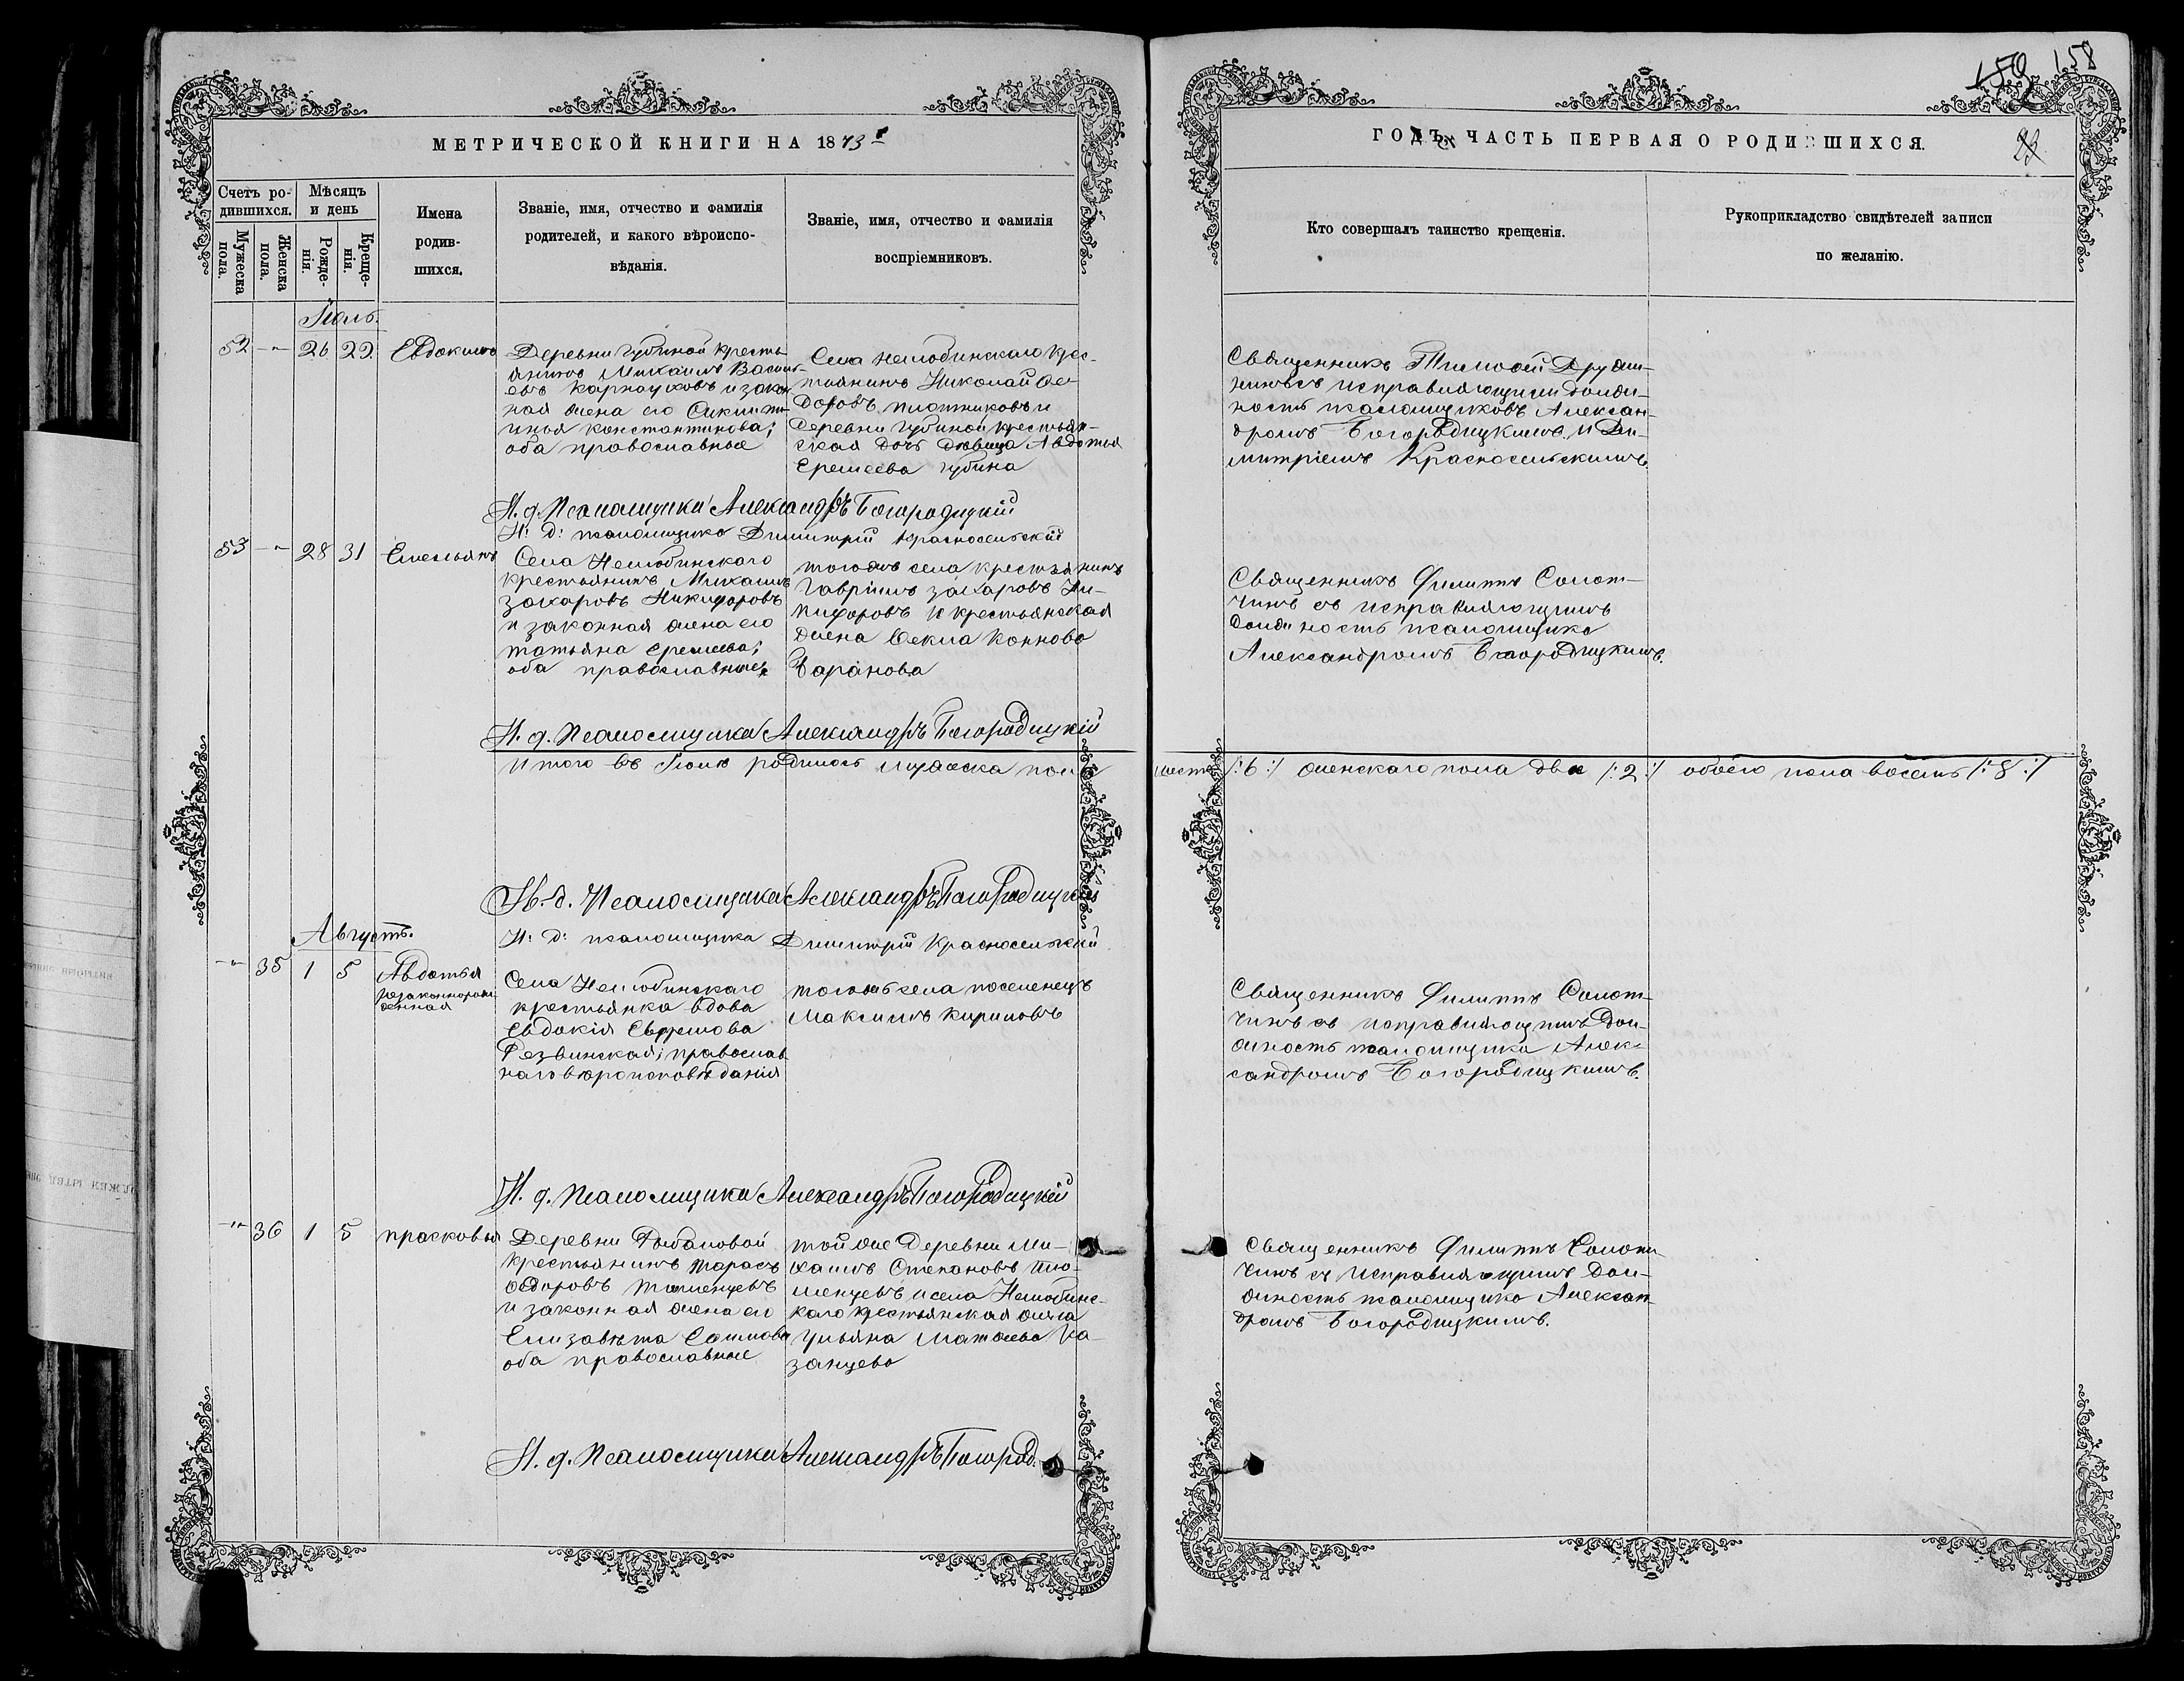 159 158
МЕТРИЧЕСКОЙ КНИГИ НА 1873 г
ГОДЪ, ЧАСТЬ ПЕРВАЯ О РОДИВШИХСЯ.
23
Счетъ ро-
дившихся.
Мужеска
пола.
Женска
пола.
Мѣсяцъ
и день
Рожде-
нія.
Креще-
нія.
Имена
родив-
шихся.
Званіе, имя, отчество и фамилія
родителей, и какого вѣроиспо-
вѣданія.
Званіе, имя, отчество и фамилія
воспріемниковъ.
Кто совершалъ таинство крещенія.
Рукоприкладство свидѣтелей записи
по желанію.
Іюль.
52 -"- 26 29 Евдокимъ
Деревни Губиной кресть-
янинъ Михаилъ Василь-
евъ Карнауховъ и закон-
ная жена его
Константинова;
оба православные
Села Нелюбинскаго крес-
тьянинъ Николай Ѳе-
доровъ Плотниковъ и
деревни Губиной крестьян-
ская дочь девица Авдотья
Еремеева Губина
Священникъ Тимофей
исправляющими долж-
ность псаломщиковъ Алексан-
дромъ Богородицкимъ и Ди-
митріемъ Красносельскимъ.
И. д. Псаломщика Александръ Богородицкій
И: д: псаломщика Димитрій Красносельскій
53 -"- 28 31 Емельянъ
Села Нелюбинскаго
крестьянинъ Михаилъ
Захаровъ Никифоровъ
и законная жена его
Татьяна Еремеева;
оба православные
тогожъ села крестьянинъ
Гавріилъ Захаровъ Ни-
кифоровъ и крестьянская
жена Ѳекла Конново
Баранова
Священникъ Филиппъ Солот-
чинъ съ исправляющимъ
должность псаломщика
Александромъ Богородицкимъ.
И. д. Псаломщика Александръ Богородицкій
Итого въ Іюлѣ родилось мужеска пола шесть /:6:/ женскаго пола два /:2:/ обоего пола восемь /:8:/
И. д. Псаломщика Александръ Богородицкій
И: д: псаломщика Димитрій Красносельскій
Августъ.
-"- 35 1 5 Авдотья
незаконнорож-
денная
Села Нелюбинскаго
крестьянка вдова
Евдокія Ефремова
Резвинская; православ-
наго вѣроисповѣданія
тогожъ села поселенецъ
Максимъ Кириловъ
Священникъ Филиппъ Солот-
чинъ съ исправляющимъ дол-
жность псаломщика Алек-
сандромъ Богородицкимъ.
И. д. Псаломщика Александръ Богородицкій
-"- 36 1 5 Прасковья
Деревни Рыбаловой
крестьянинъ Тарасъ
Ѳедоровъ Тюменцевъ
и законная жена его
Елизавѣта
оба православные
той же деревни Ми-
хаилъ Степановъ Тю-
менцевъ и села Нелюбинс-
каго крестьянская жена
Ульяна Матѳеева Ка-
занцева
Священникъ Филиппъ Солот-
чинъ съ исправляющимъ дол-
жность псаломщика Алексан-
дромъ Богородицкимъ.
И. д. Псаломщика Александръ Богород.